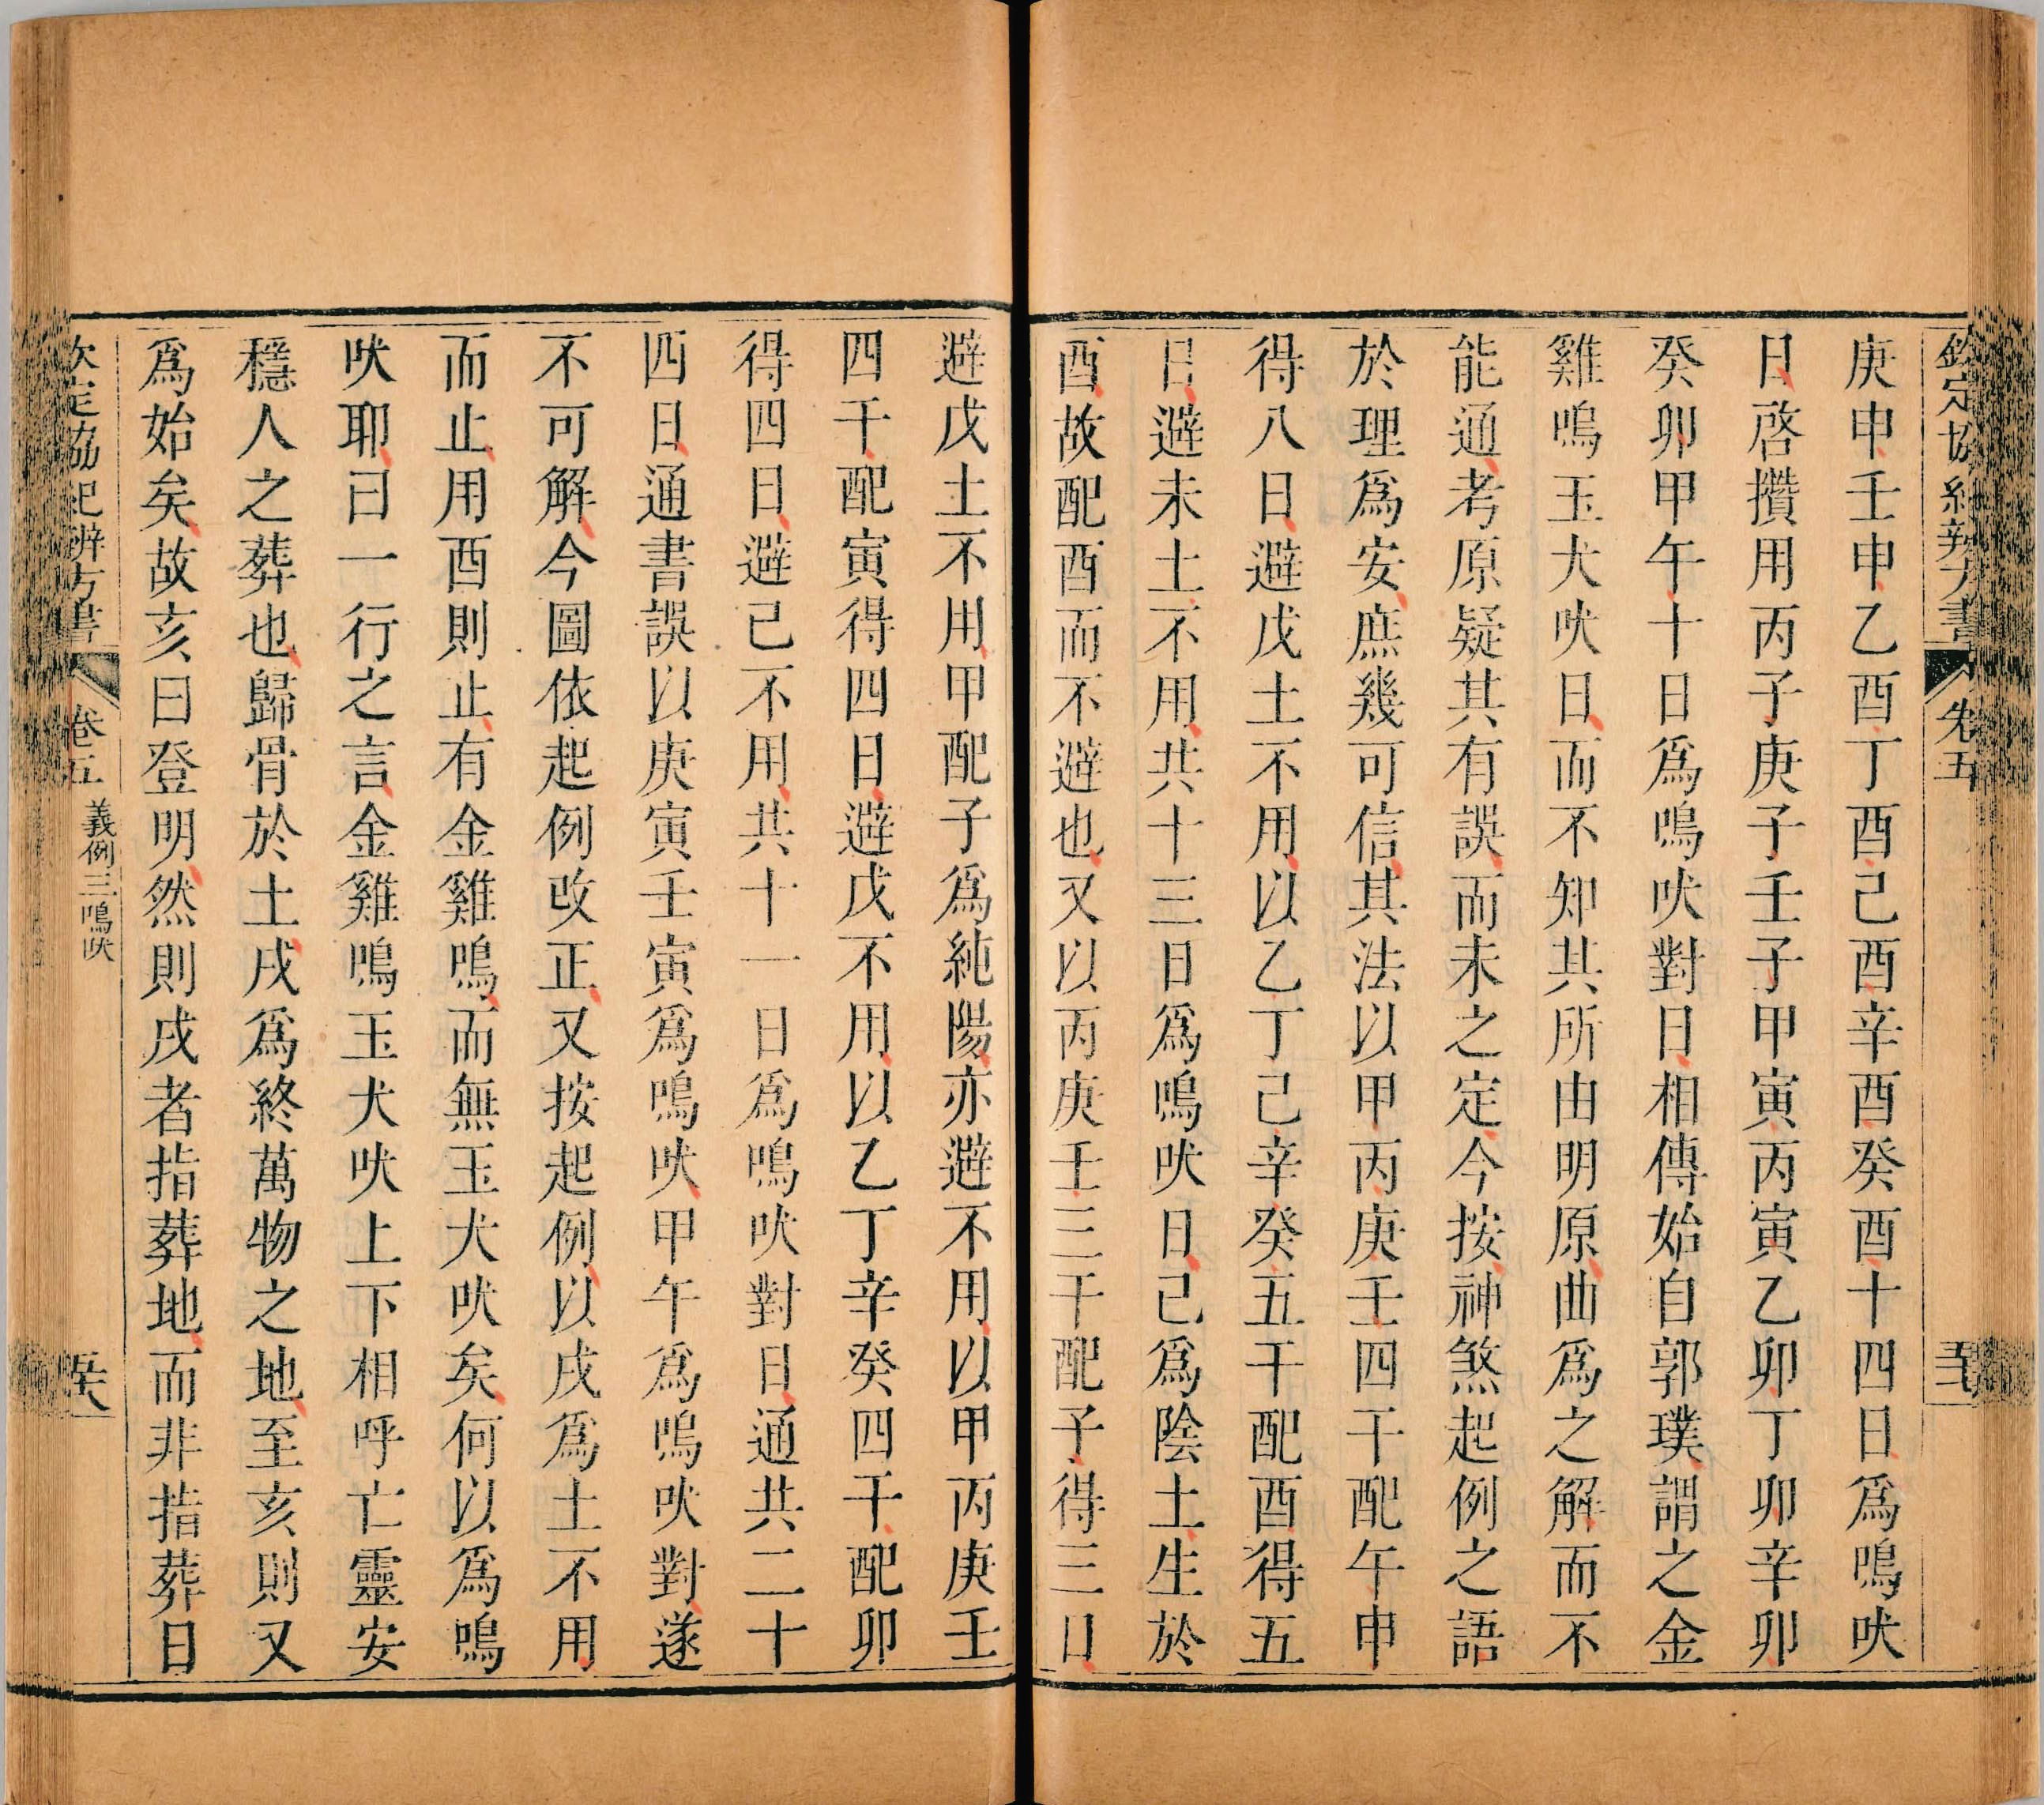 欽定協紀辨方書 卷五
庚申壬申乙酉丁酉己酉辛酉癸酉十四日爲鳴吠
日啓攢用丙子庚子壬子甲寅丙寅乙卯丁卯辛卯
癸卯甲午十日爲鳴吠對日相傳始自郭璞謂之金
雞鳴玉犬吠日而不知其所由明原曲爲之解而不
能通考原疑其有誤而未之定今按神煞起例之語
於理爲安庶幾可信其法以甲丙庚壬四干配午申
得八日避戊土不用以乙丁己辛癸五干配酉得五
日避未土不用共十三日爲鳴吠日己爲陰土生於
酉故配酉而不避也又以丙庚壬三干配子得三日
避戊土不用甲配子爲純陽亦避不用以甲丙庚壬
四干配寅得四日避戊不用以乙丁辛癸四干配卯
得四日避己不用共十一日爲鳴吠對日通共二十
四日通書誤以庚寅壬寅爲鳴吠甲午爲鳴吠對遂
不可解今圖依起例改正又按起例以戌爲土不用
而止用酉則止有金雞鳴而無玉犬吠矣何以爲鳴
吠耶曰一行之言金雞鳴玉犬吠上下相呼亡靈安
穩人之葬也歸骨於土戌爲終萬物之地至亥則又
爲始矣故亥曰登明然則戌者指葬地而非指葬日
欽定協紀辨方書 卷五 義例三鳴吠